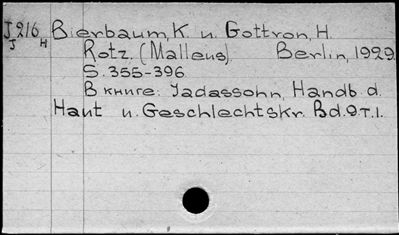 J216 Bierbaum, K. u. Gottron, H.
J H Rotz. (Malleus). Berlin, 1929.
S. 355-396
В книге: Jadassohn, Handb. d.
Haut u. Geschlechtskr. Bd. 9 т. 1.